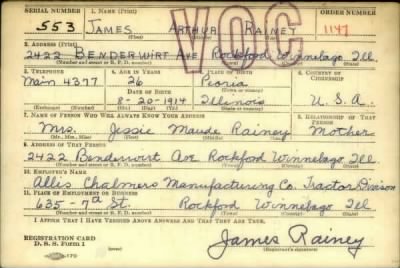 SERIAL NUMBER 1. NAME (Print) ORDER NUMBER
553 JAMES ARTHUR RAINEY 1147
VOC
(First) (Middle) (Last)
2. ADDRESS (Print)
2422 BENDERWIRT AVE Rockford Winnebago Ill.
(Number and street or R. F. D. number) (Town) (County) (State)
3. TELEPHONE 4. AGE IN YEARS 5. PLACE OF BIRTH 6. COUNTRY OF CITIZENSHIP
Main 4377 26 Peoria
DATE OF BIRTH
8-20-1914 Illinois U. S. A.
7. NAME OF PERSON WHO WILL ALWAYS KNOW YOUR ADDRESS 8. RELATIONSHIP OF THAT PERSON
Mrs. Jessie Maude Rainey Mother
(Mr., Mrs., Miss) (First) (Middle) (Last)
9. ADDRESS OF THAT PERSON
2422 Benderwirt Ave Rockford Winnebago Ill
(Number and street or R. F. D. number) (Town) (County) (State)
10. EMPLOYER'S NAME
Allis Chalmers Manufacturing Co. Tractor Division
11. PLACE OF EMPLOYMENT OR BUSINESS
635 - 7th St. Rockford Winnebago Ill
(Number and street or R. F. D. number) (Town) (County) (State)
I AFFIRM THAT I HAVE VERIFIED ABOVE ANSWERS AND THAT THEY ARE TRUE.
REGISTRATION CARD
D. S. S. Form 1 James Rainey
(Registrant's signature)